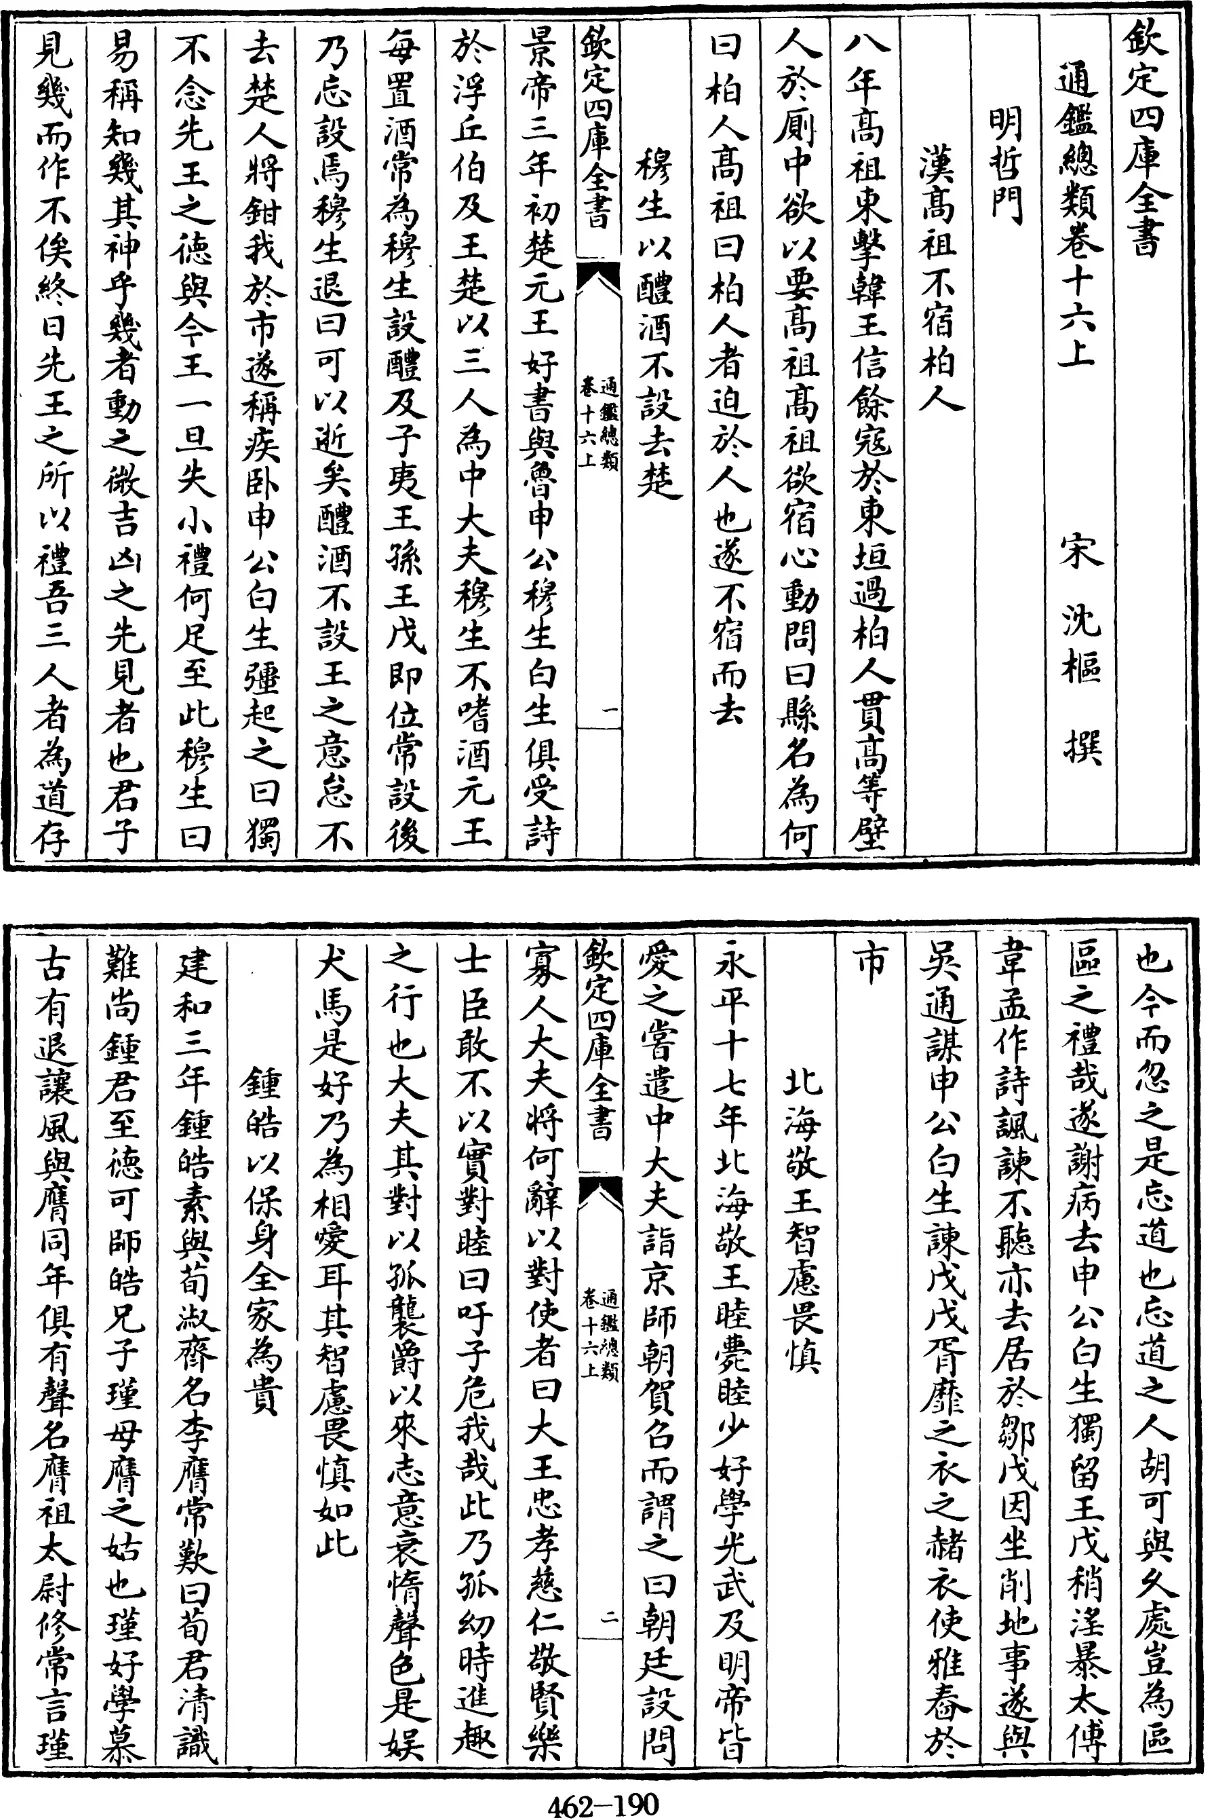 欽定四庫全書
通鑑總類卷十六上　宋　沈樞　撰
明哲門
漢髙祖不宿柏人
八年髙祖東擊韓王信餘寇於東垣過柏人貫髙等壁
人於厠中欲以要髙祖髙祖欲宿心動問曰縣名為何
曰柏人髙祖曰柏人者迫於人也遂不宿而去
穆生以醴酒不設去楚
欽定四庫全書　通鑑總類卷十六上　一
景帝三年初楚元王好書與魯申公穆生白生俱受詩
於浮丘伯及王楚以三人為中大夫穆生不嗜酒元王
每置酒常為穆生設醴及子夷王孫王戊即位常設後
乃忘設焉穆生退曰可以逝矣醴酒不設王之意怠不
去楚人將鉗我於市遂稱疾卧申公白生彊起之曰獨
不念先王之德與今王一旦失小禮何足至此穆生曰
易稱知幾其神乎幾者動之微吉凶之先見者也君子
見幾而作不俟終日先王之所以禮吾三人者為道存
也今而忽之是忘道也忘道之人胡可與久處豈為區
區之禮哉遂謝病去申公白生獨留王戊稍淫暴太傅
韋孟作詩諷諫不聽亦去居於鄒戊因坐削地事遂與
吳通謀申公白生諫戊戊胥靡之衣之赭衣使雅舂於
市
北海敬王智慮畏慎
永平十七年北海敬王睦薨睦少好學光武及明帝皆
愛之嘗遣中大夫詣京師朝賀召而謂之曰朝廷設問
欽定四庫全書　通鑑總類卷十六上　二
寡人大夫將何辭以對使者曰大王忠孝慈仁敬賢樂
士臣敢不以實對睦曰吁子危我哉此乃孤幼時進趣
之行也大夫其對以孤襲爵以來志意衰惰聲色是娛
犬馬是好乃為相愛耳其智慮畏慎如此
鍾皓以保身全家為貴
建和三年鍾皓素與荀淑齊名李膺常歎曰荀君清識
難尚鍾君至德可師皓兄子瑾母膺之姑也瑾好學慕
古有退讓風與膺同年俱有聲名膺祖太尉修常言瑾
462—190